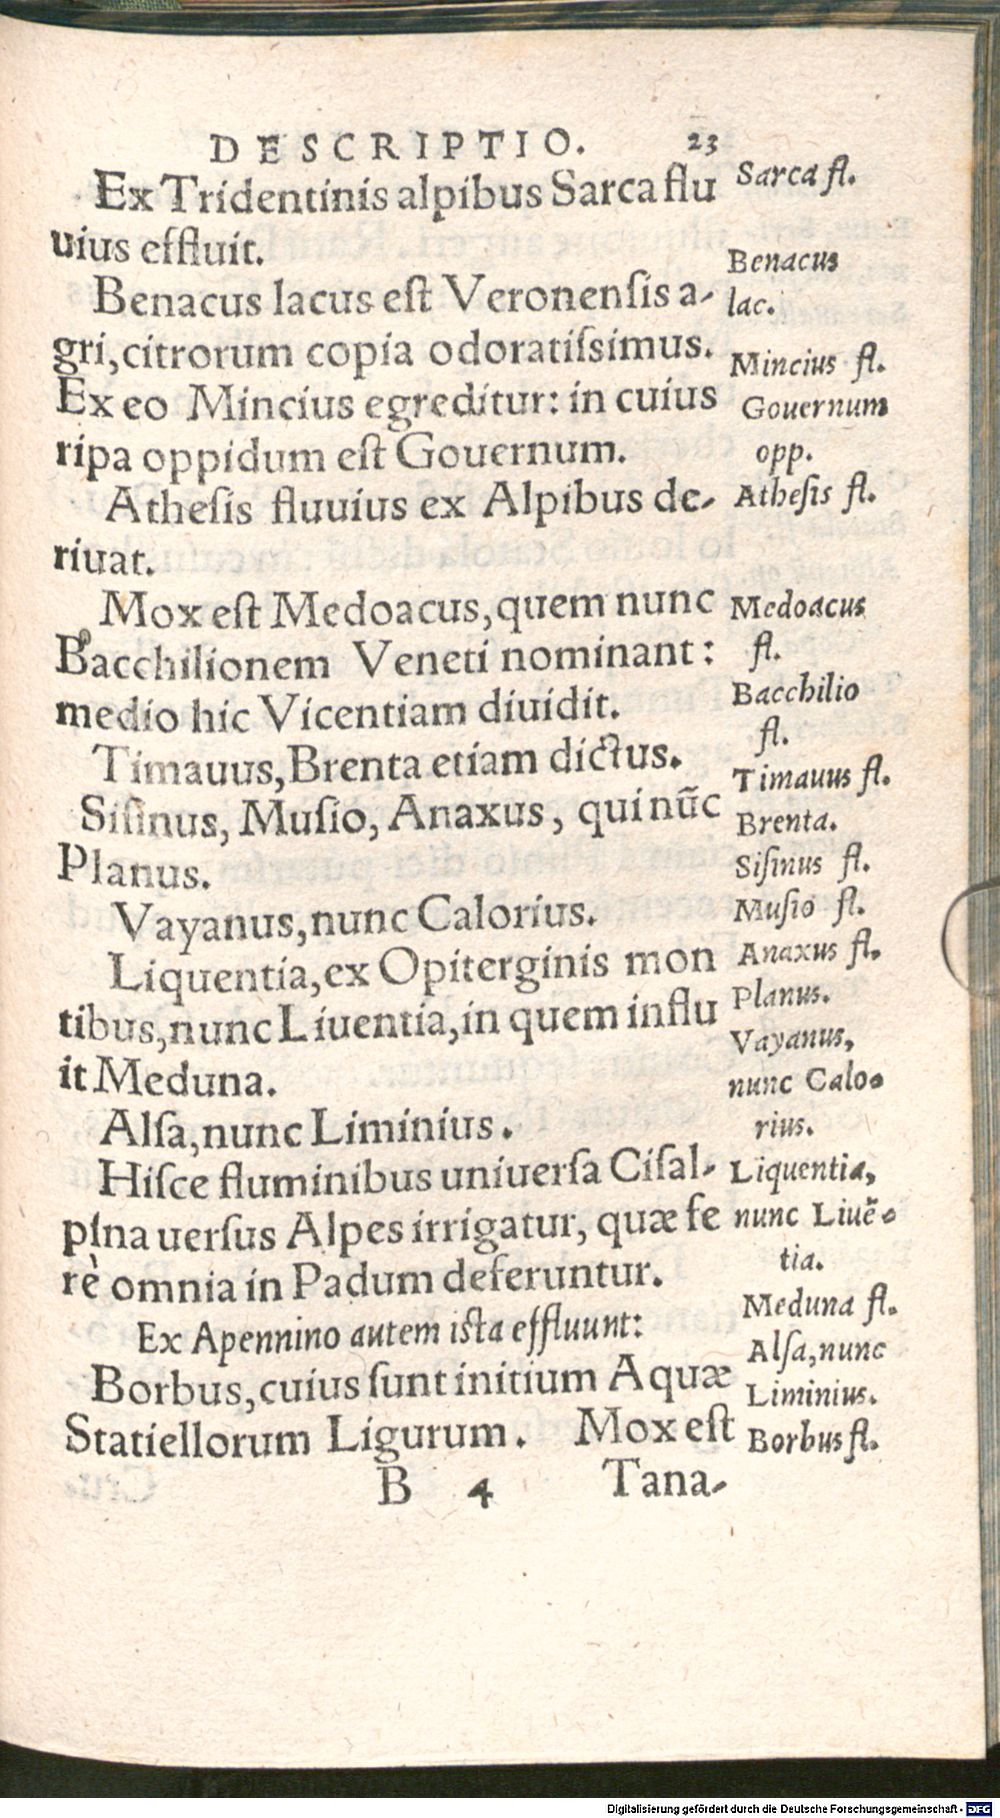 DESCRIPTIO. 23
Ex Tridentinis alpibus Sarca flu
uius effluit.
Benacus lacus est Veronensis a-
gri, citrorum copia odoratissimus.
Ex eo Mincius egreditur: in cuius
ripa oppidum est Gouernum.
Athesis fluuius ex Alpibus de-
riuat.
Mox est Medoacus, quem nunc
Bacchilionem Veneti nominant:
medio hic Vicentiam diuidit.
Timauus, Brenta etiam dictus.
Sisinus, Musio, Anaxus, qui nūc
Planus.
Vayanus, nunc Calorius.
Liquentia, ex Opiterginis mon
tibus, nunc Liuentia, in quem influ
it Meduna.
Alsa, nunc Liminius.
Hisce fluminibus uniuersa Cisal-
pina uersus Alpes irrigatur, quæ fe
rè omnia in Padum deferuntur.
Ex Apennino autem ista effluunt:
Borbus, cuius sunt initium Aquæ
Statiellorum Ligurum. Mox est
B 4 Tana-
Sarca fl.
Benacus
lac.
Mincius fl.
Gouernum
opp.
Athesis fl.
Medoacus
fl.
Bacchilio
fl.
Timauus fl.
Brenta.
Sisinus fl.
Musio fl.
Anaxus fl.
Planus.
Vayanus,
nunc Calo-
rius.
Liquentia,
nunc Liuē-
tia.
Meduna fl.
Alsa, nunc
Liminius.
Borbus fl.
Digitalisierung gefördert durch die Deutsche Forschungsgemeinschaft - DFG